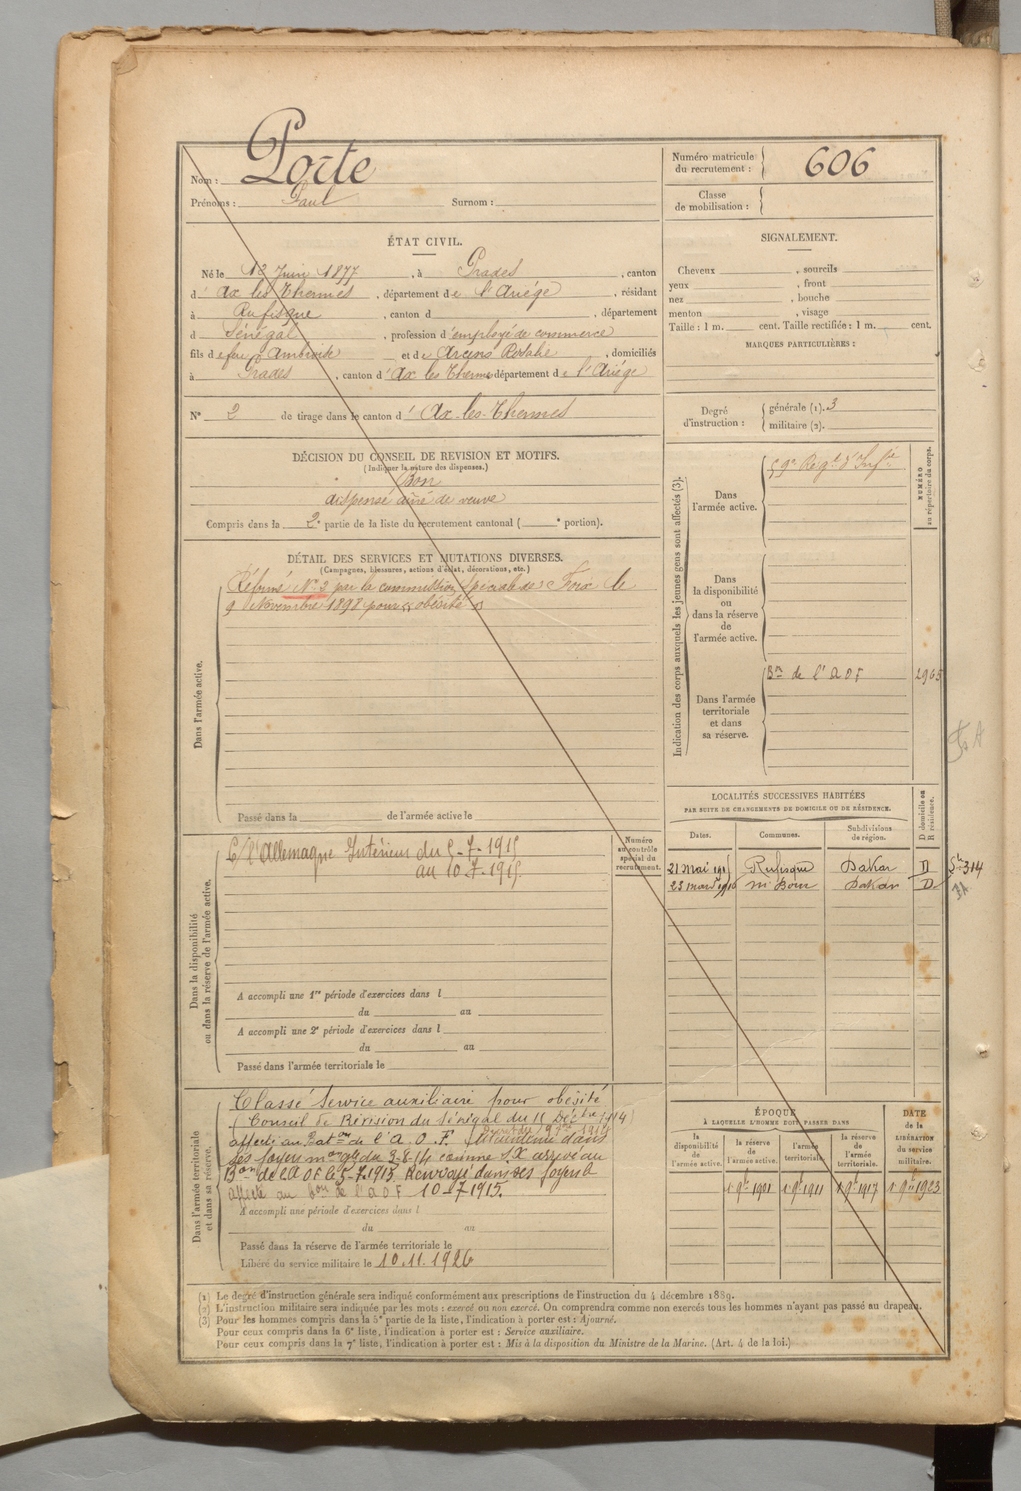 Nom : Porte
Prénoms : Paul Surnom :
Numéro matricule du recrutement : 606
Classe de mobilisation :
ÉTAT CIVIL.
Né le 12 Juin 1877, à Prades, canton
d' Ax les Thermes, département de l'Ariège, résidant
à Rufisque, canton d , département
d Sénégal, profession d'employé de commerce
fils de feu Ambroise et de Arcens Rosalie, domiciliés
à Prades, canton d'Ax les Thermes département de l'Ariège
N° 2 de tirage dans le canton d'Ax-les-Thermes
SIGNALEMENT.
Cheveux , sourcils
yeux , front
nez , bouche
menton , visage
Taille : 1 m. cent. Taille rectifiée : 1 m. cent.
MARQUES PARTICULIÈRES :
Degré d'instruction : générale (1). 3
militaire (2).
DÉCISION DU CONSEIL DE REVISION ET MOTIFS.
(Indiquer la nature des dispenses.)
Bon
dispensé aîné de veuve
Compris dans la 2e partie de la liste du recrutement cantonal ( e portion).
DÉTAIL DES SERVICES ET MUTATIONS DIVERSES.
(Campagnes, blessures, actions d'éclat, décorations, etc.)
Dans l'armée active.
Réformé N° 2 par la commission spéciale de Foix le
9 Novembre 1898 pour « obésité »
Passé dans la de l'armée active le
Indication des corps auxquels les jeunes gens sont affectés (3).
NUMÉRO au répertoire du corps.
Dans l'armée active.
59e Régt d'Infie
Dans la disponibilité ou dans la réserve de l'armée active.
Dans l'armée territoriale et dans sa réserve.
Bn de l'AOF 2965
LOCALITÉS SUCCESSIVES HABITÉES
PAR SUITE DE CHANGEMENTS DE DOMICILE OU DE RÉSIDENCE.
Dates. Communes. Subdivisions de région. D domicile ou R résidence.
21 Mai Rufisque Dakar D
23 mars M'Bour Dakar D
Dans la disponibilité ou dans la réserve de l'armée active.
Numéro au contrôle spécial du recrutement.
C/ l'Allemagne Intérieur du 5-7-1915
au 10-7-1915
A accompli une 1re période d'exercices dans l
du au
A accompli une 2e période d'exercices dans l
du au
Passé dans l'armée territoriale le
Dans l'armée territoriale et dans sa réserve.
Classé Service auxiliaire pour obésité
(Conseil de Révision du Sénégal du 11 Décbre 1914)
affecté au Baton de l'A.O.F. dans
ses foyers du 3-8-14 comme arrivé au
Bon de l'AOF le 5-7-1915 Renvoyé dans ses foyers
affecté au Bon de l'AOF 10-7-1915.
A accompli une période d'exercices dans l
du au
Passé dans la réserve de l'armée territoriale le
Libéré du service militaire le 10.11.1926
ÉPOQUE
À LAQUELLE L'HOMME DOIT PASSER DANS
DATE de la LIBÉRATION du service militaire.
la disponibilité de l'armée active. la réserve de l'armée active. l'armée territoriale. la réserve de l'armée territoriale.
1 9bre 1901 1 9bre 1911 1 9bre 1917 1 9bre 1923
(1) Le degré d'instruction générale sera indiqué conformément aux prescriptions de l'instruction du 4 décembre 1889.
(2) L'instruction militaire sera indiquée par les mots : exercé ou non exercé. On comprendra comme non exercés tous les hommes n'ayant pas passé au drapeau.
(3) Pour les hommes compris dans la 5e partie de la liste, l'indication à porter est : Ajourné.
Pour ceux compris dans la 6e liste, l'indication à porter est : Service auxiliaire.
Pour ceux compris dans la 7e liste, l'indication à porter est : Mis à la disposition du Ministre de la Marine. (Art. 4 de la loi.)